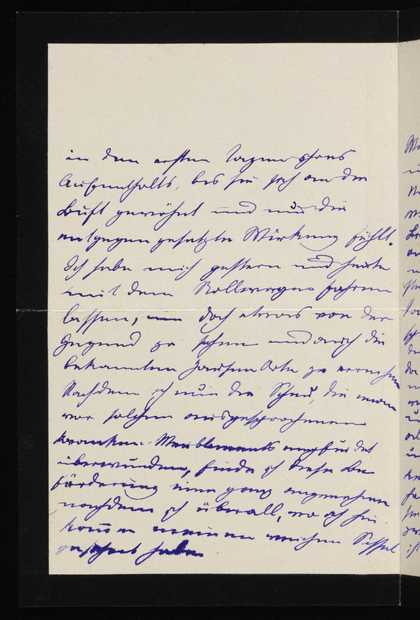 in den ersten Tagen ihres
Aufenthalts, bis sie sich an die
Luft gewöhnt und nur die
entgegen gesetzte Wirkung fühlt.
Ich habe mich gestern und heute
mit dem Rollwagen fahren
lassen, um doch etwas von der
Gegend zu sehen und auch die
bekannten Orte zu
Nachdem ich nun die Scheu, die man
vor solchen ausgesprochenen
Kranken empfindet
überwunden, finde ich diese Be
förderung eine ganz angenehme
nachdem ich überall, wo ich hin
komme meinen weichen Sessel
habe